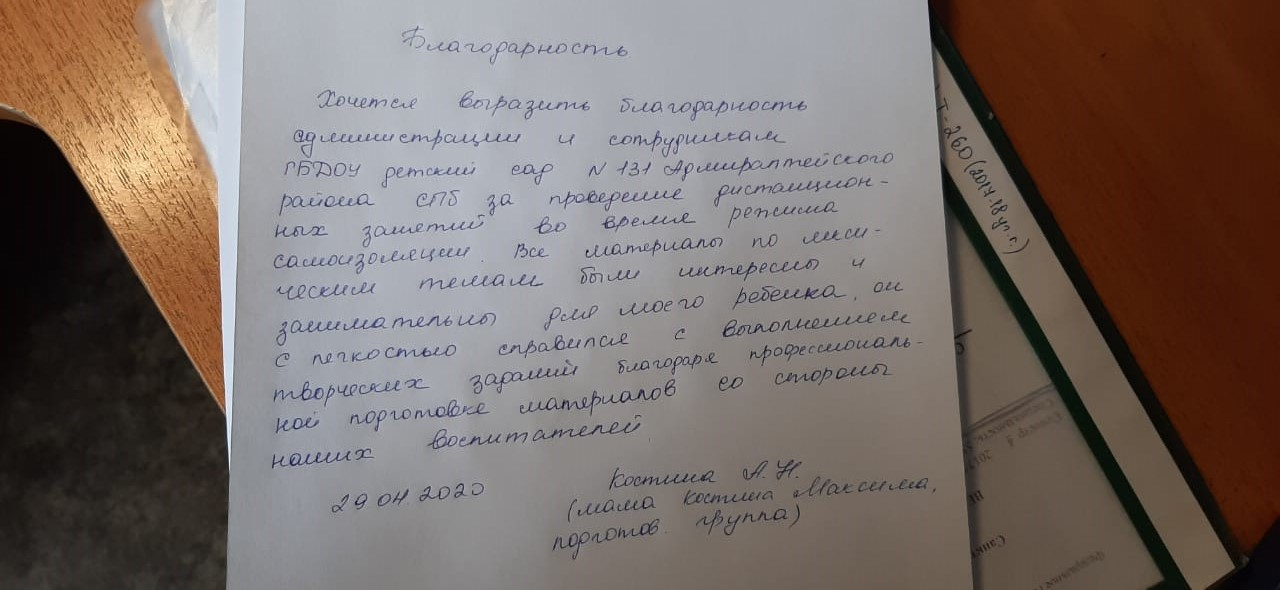 Благодарность
Хочется выразить благодарность
администрации и сотрудникам
ГБДОУ детский сад N 131 Адмиралтейского
района СПб за проведение дистанцион-
ных занятий во время режима
самоизоляции. Все материалы по лекси-
ческим темам были интересны и
занимательны для моего ребенка, он
с легкостью справился с выполнением
творческих заданий благодаря профессиональ-
ной подготовке материалов со стороны
наших воспитателей
29 04 2020
Костина А. Н.
(мама Костина Максима,
подготов. группа)
Т-260 (2017-18 уч. г.)
Семестр 4